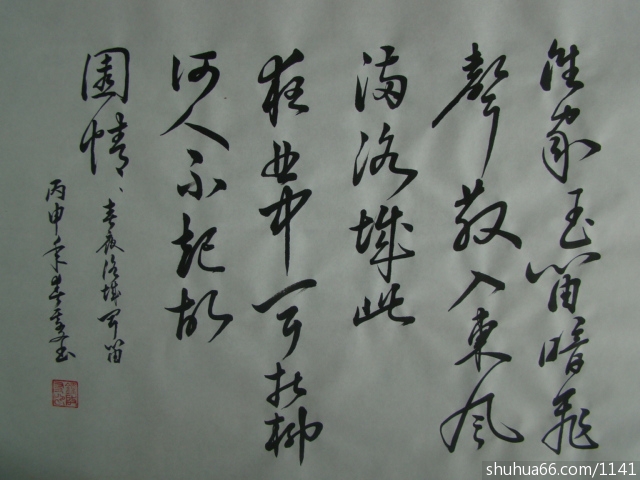 谁家玉笛暗飛
聲散入東風
满洛城此
夜曲中闻折柳
何人不起故
園情、春夜洛城闻笛
丙申年书
shuhua66.com/1141